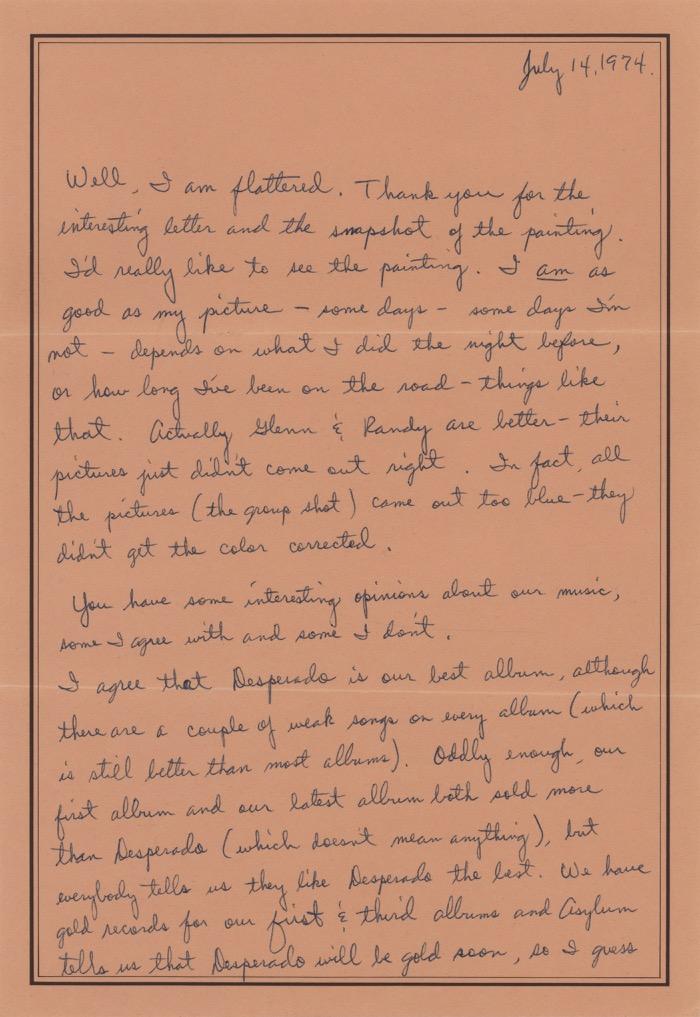 July 14, 1974.
Well, I am flattered. Thank you for the
interesting letter and the snapshot of the painting.
I'd really like to see the painting. I am as
good as my picture – some days – some days I'm
not – depends on what I did the night before,
or how long I've been on the road – things like
that. Actually Glenn & Randy are better – their
pictures just didn't come out right. In fact, all
the pictures (the group shot) came out too blue – they
didn't get the color corrected.
You have some interesting opinions about our music,
some I agree with and some I don't.
I agree that Desperado is our best album, although
there are a couple of weak songs on every album (which
is still better than most albums). Oddly enough, our
first album and our latest album both sold more
than Desperado (which doesn't mean anything), but
everybody tells us they like Desperado the best. We have
gold records for our first & third albums and Asylum
tells us that Desperado will be gold soon, so I guess